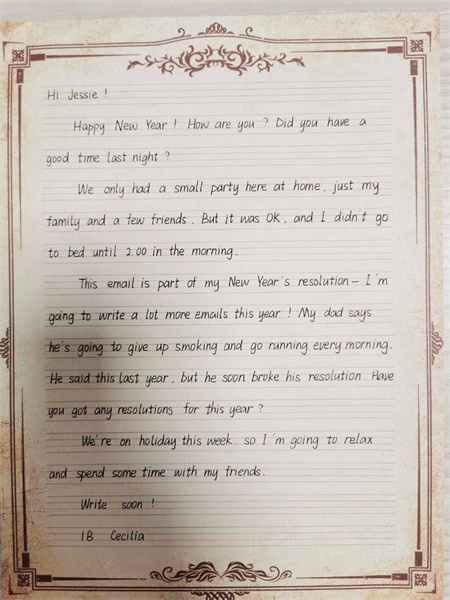 Hi Jessie !
Happy New Year ! How are you ? Did you have a
good time last night ?
We only had a small party here at home, just my
family and a few friends. But it was OK, and I didn't go
to bed until 2.00 in the morning.
This email is part of my New Year's resolution — I'm
going to write a lot more emails this year ! My dad says
he's going to give up smoking and go running every morning.
He said this last year, but he soon broke his resolution. Have
you got any resolutions for this year ?
We're on holiday this week. so I'm going to relax
and spend some time with my friends.
Write soon !
1B Cecilia